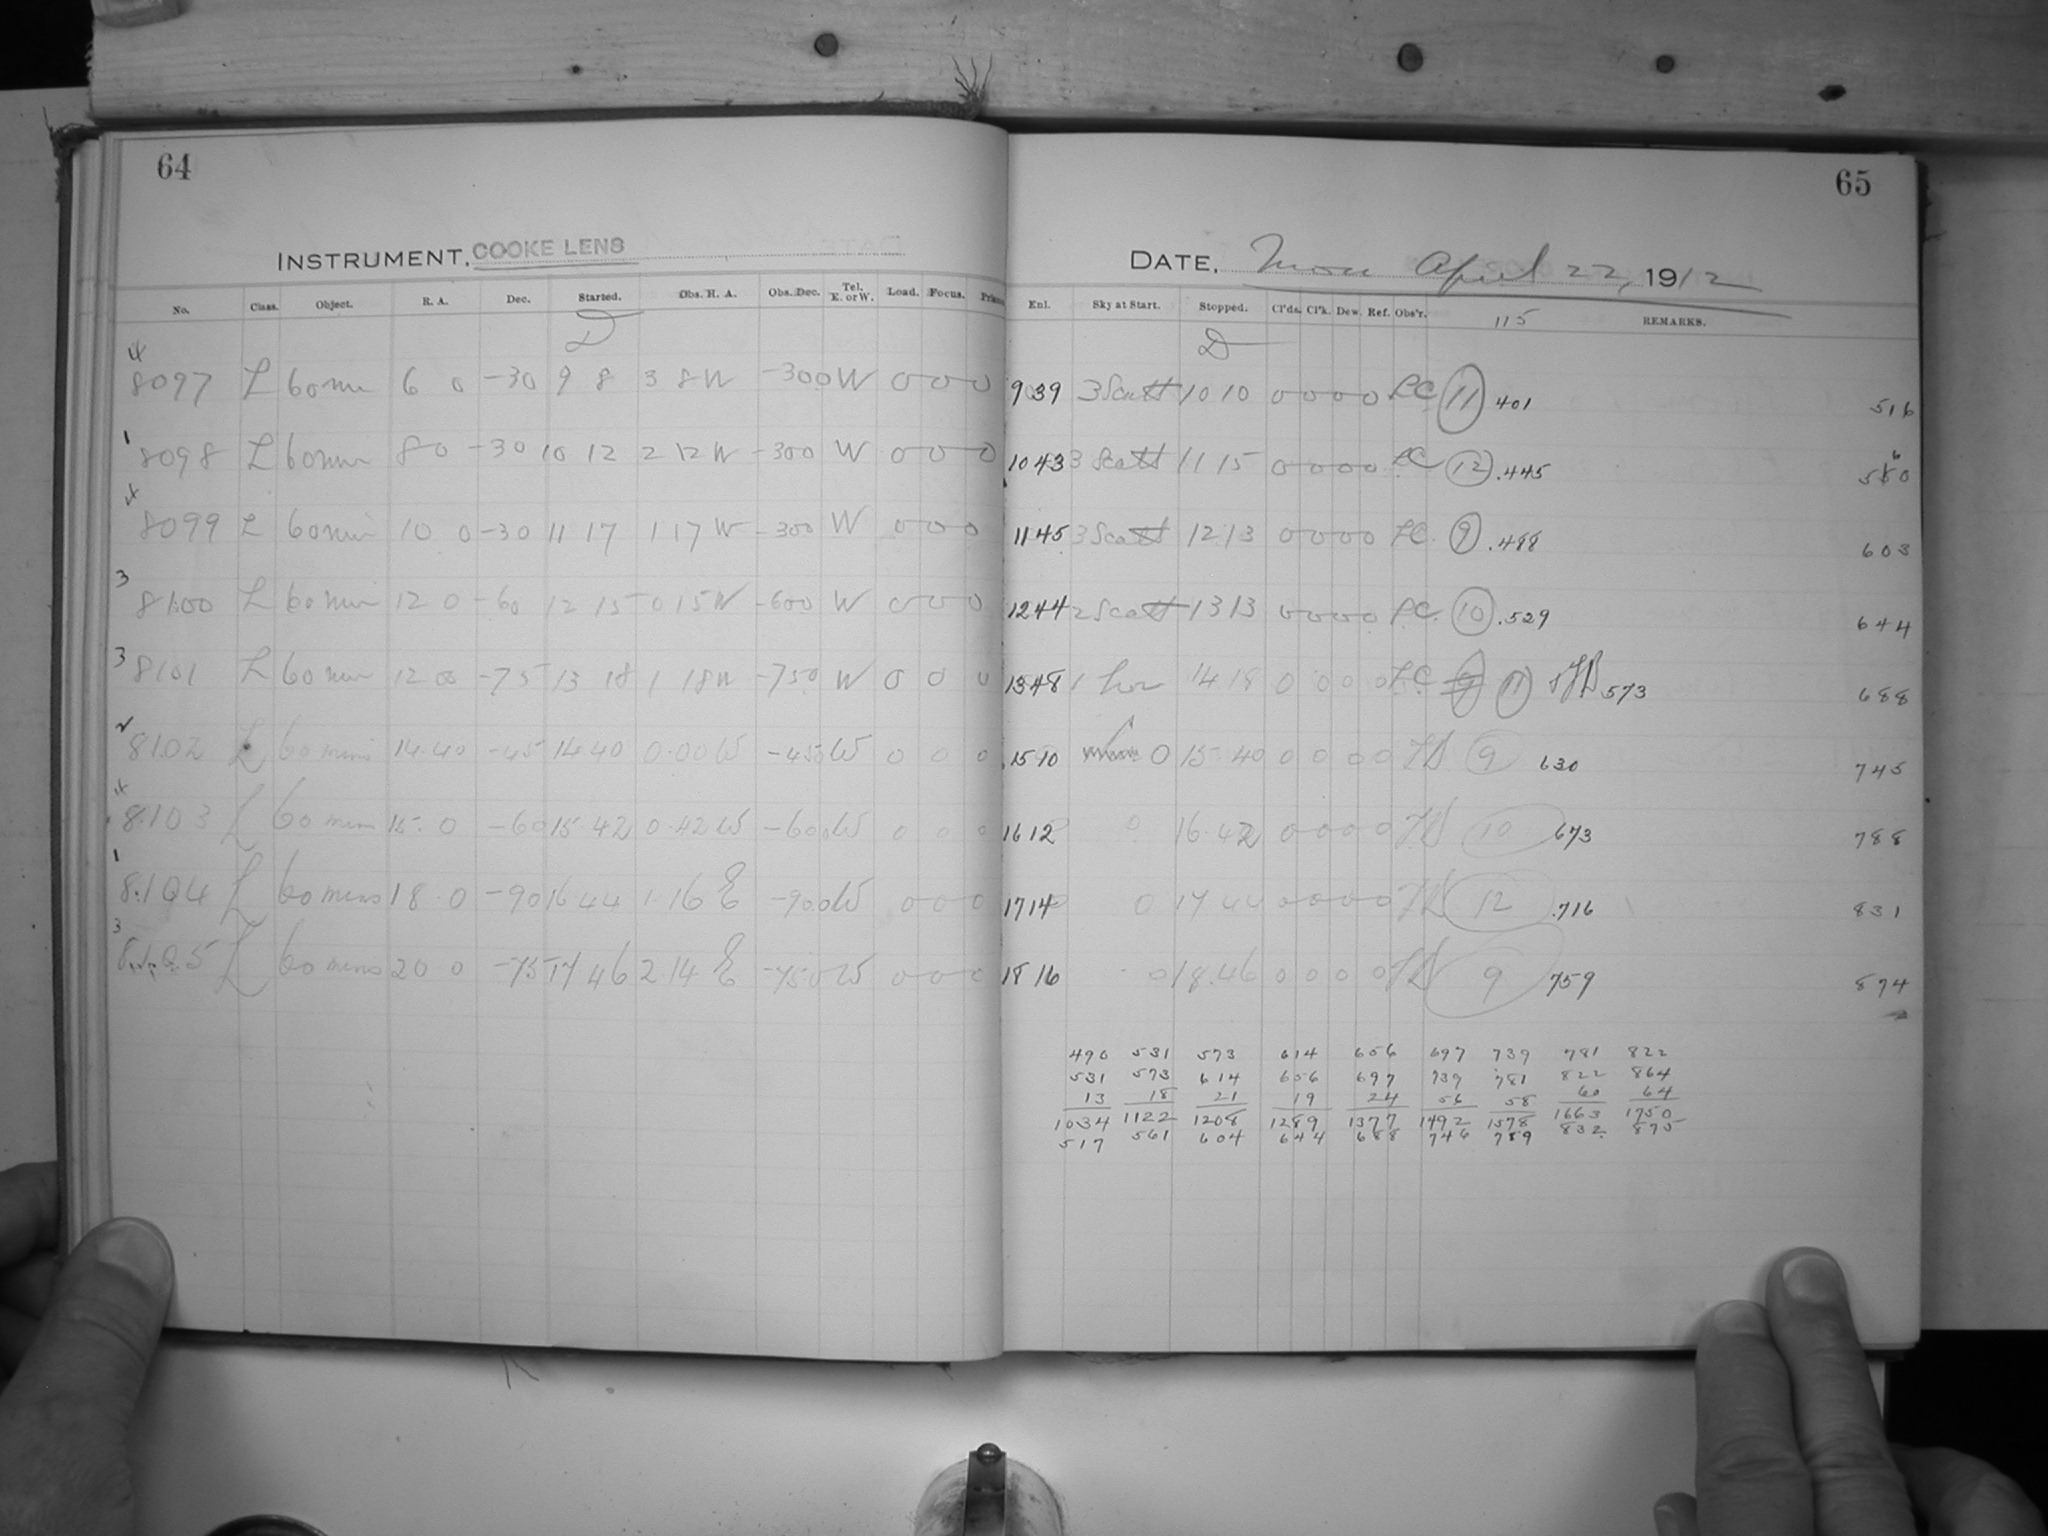 64
INSTRUMENT, COOKE LENS
No. Class. Object. R. A. Dec. Started. Obs. H. A. Obs. Dec. Tel. E. or W. Load. Focus.
D
8097 L 60 min 6 0 -30 9 8 3 8 W -300 W 0 0 0
8098 L 60 min 8 0 -30 10 12 2 12 W -300 W 0 0 0
8099 L 60 min 10 0 -30 11 17 1 17 W -300 W 0 0 0
3 8100 L 60 min 12 0 -60 12 15 0 15 W -600 W 0 0 0
3 8101 L 60 min 12 00 -75 13 18 1 18 W -750 W 0 0 0
8102 L 60 mins 14.40 -45 14 40 0.00 W -450 W 0 0 0
8103 L 60 mins 15. 0 -60 15 42 0.42 W -600 W 0 0 0
1 8104 L 60 mins 18. 0 -90 16 44 1.16 E -900 W 0 0 0
3 8105 L 60 mins 20 0 -75 17 46 2 14 E -750 W 0 0 0
65
DATE, Mon April 22, 1912
Enl. Sky at Start. Stopped. Cl'ds. Cl'k. Dew. Ref. Obs'r. 115 REMARKS.
D
939 3 Scatt 10 10 0 0 0 0 LC 11 401 516
1043 3 Scatt 11 15 0 0 0 0 LC 12 .445 560
1145 3 Scatt 12 13 0 0 0 0 LC. 9 .488 603
1244 2 Scatt 13 13 0 0 0 0 LC. 10 .529 644
1348 1 hor 14 18 0 0 0 0 LC 11 573 688
1510 0 15 40 0 0 0 0 9 630 745
1612 0 16.42 0 0 0 0 10 673 788
1714 0 17 44 0 0 0 0 12 .716 831
1816 0 18.46 0 0 0 0 9 759 874
490 531 573 614 656 697 739 781 822
531 573 614 656 697 739 781 822 864
13 18 21 19 24 56 58 60 64
1034 1122 1208 1289 1377 1492 1578 1663 1750
517 561 604 644 688 746 789 832 875